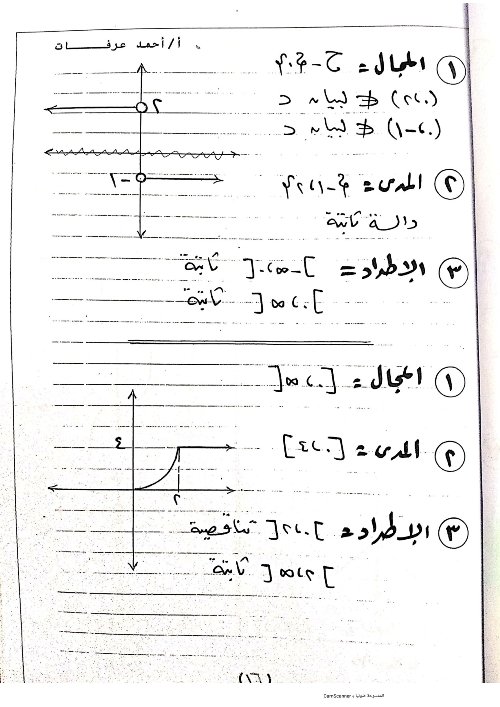 أ/أحمد عرفات
١ المجال = ح - {٠}
(٢،٠) ∉ لبيان د
(٠،-١) ∉ لبيان د
٢
-١
٢ المدى = {-١،٢}
دالة ثابتة
٣ الإطراد = ]-∞،٠[ ثابتة
]٠،∞[ ثابتة
١ المجال = [٠،∞[
٤
٢
٢ المدى = [٠،٤]
٣ الإطراد = ]٠،٢[ تناقصية
]٢،∞[ ثابتة
(١٦)
الممسوحة ضوئيا بـ CamScanner